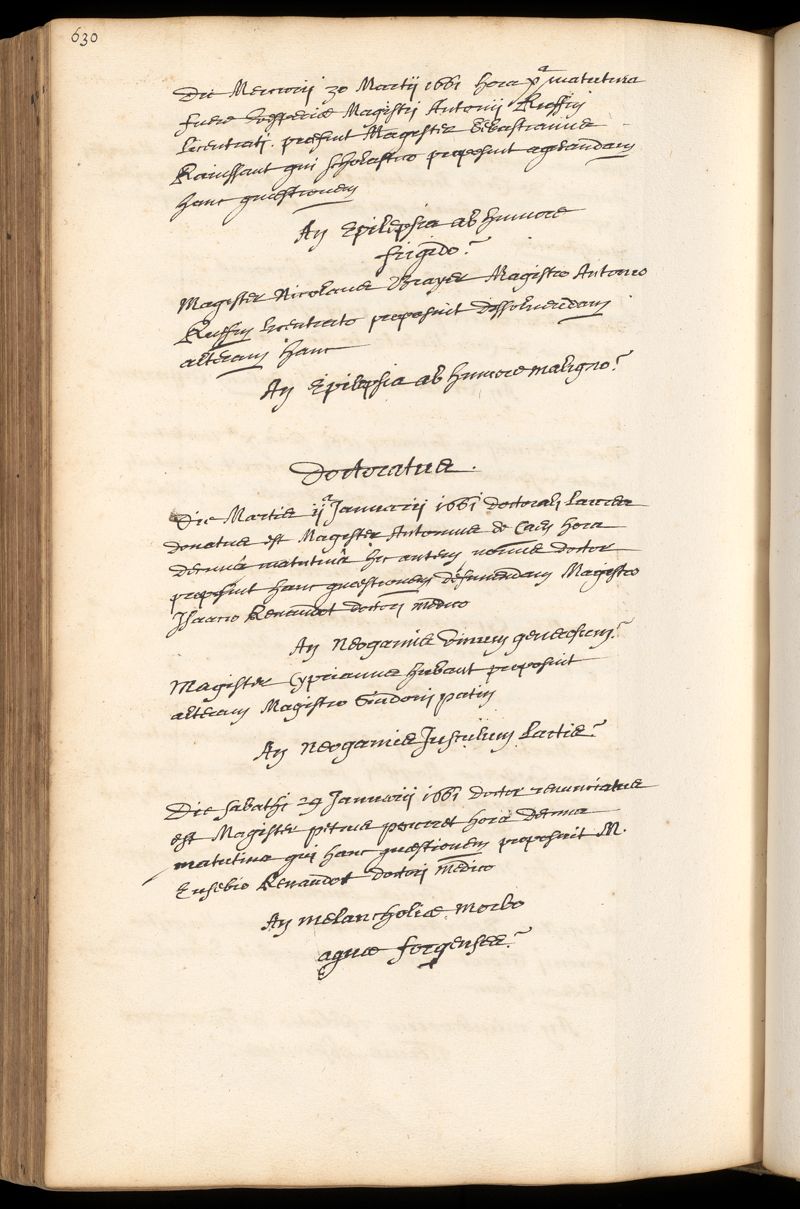 630
Die Mercurii 30 Martii 1661 hora xª matutina
fuere vesperiæ Magistri Antonii Ruffin
licentiati. præfuit Magister Sebastianus
Rainssant qui scholastico proposuit agitandam
hanc quæstionem
An Epilepsia ab humore
frigido?
Magister Nicolaus Brayer Magistro Antonio
Ruffin licentiato proposuit dissolvendam
alteram hanc
An Epilepsia ab humore maligno?
Doctoratus.
Die Martis ijª Januarii 1661 doctorali laurea
donatus est Magister Antonius de Caen hora
decimâ matutinâ hic autem novus doctor
proposuit hanc quæstionem definiendam Magistro
Isaacio Renaudot doctori medico
An Neogamis vinum generosum?
Magister Cyprianus hubaut proposuit
alteram Magistro Guidoni patin
An Neogamis Jusculum lactis?
Die sabathi 29 Januarii 1661 doctor renunciatus
est Magister petrus perceret horâ decima
matutina qui hanc quæstionem proposuit M.
Eusebio Renaudot doctori medico
An melancholiæ morbo
aquæ forgenses?